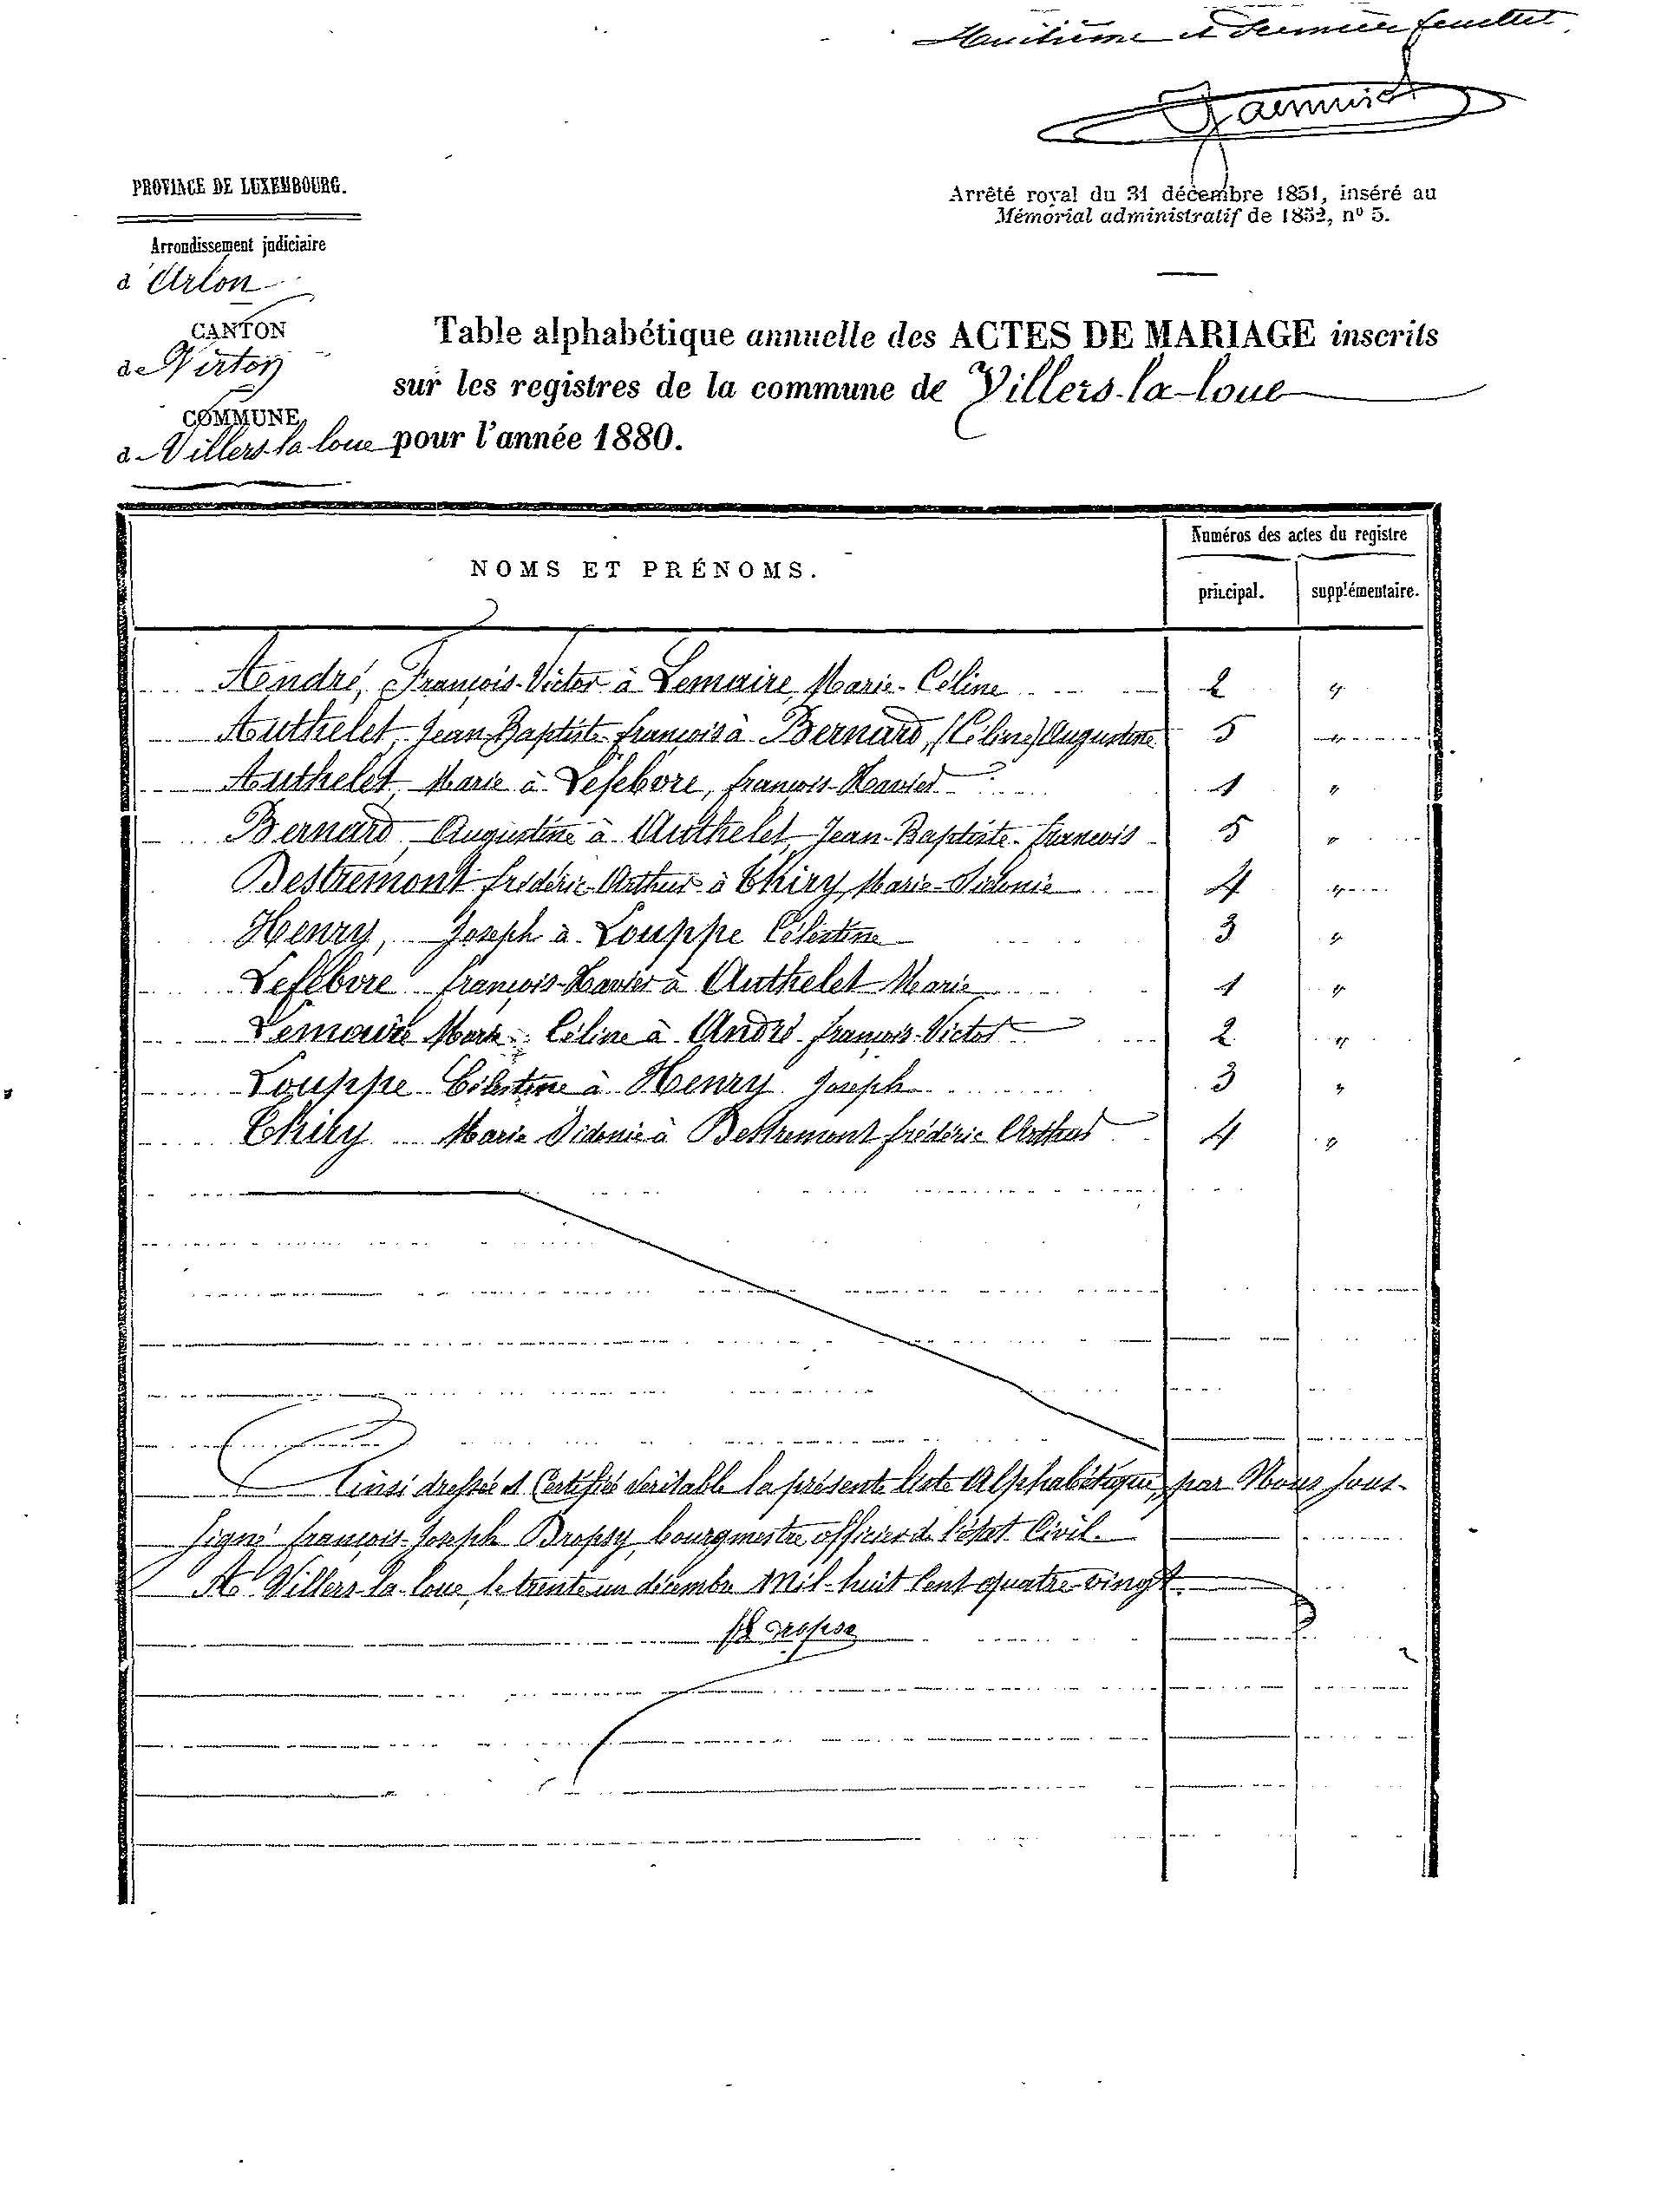 Huitième et dernier feuillet
PROVINCE DE LUXEMBOURG.
Arrondissement judiciaire
d'Arlon
CANTON
de Virton
COMMUNE
d Villers-la-loue
Arrêté royal du 31 décembre 1851, inséré au
Mémorial administratif de 1852, nº 5.
Table alphabétique annuelle des ACTES DE MARIAGE inscrits
sur les registres de la commune de Villers-la-loue
pour l'année 1880.
NOMS ET PRÉNOMS.
Numéros des actes du registre
principal. supplémentaire.
André, François-Victor à Lemaire, Marie-Céline 2 "
Authelet, Jean-Baptiste-françois à Bernard, (Céline) Augustine 5 "
Authelet, Marie à Lefebvre, françois-Xavier 1 "
Bernard, Augustine à Authelet, Jean-Baptiste-françois 5 "
Bestremont frédéric-Arthur à Thiry, Marie-Sidonie 4 "
Henry, Joseph à Louppe Célestine 3 "
Lefebvre françois-Xavier à Authelet Marie 1 "
Lemaire Marie-Céline à André françois-Victor 2 "
Louppe Célestine à Henry Joseph 3 "
Thiry Marie Sidonie à Bestremont frédéric Arthur 4 "
Ainsi dressée et Certifiée véritable la présente liste Alphabétique, par Nous sous-
signé françois-Joseph Dropsy, bourgmestre officier de l'état Civil.
A Villers-la-loue, le trente un décembre Mil-huit Cent quatre-vingt